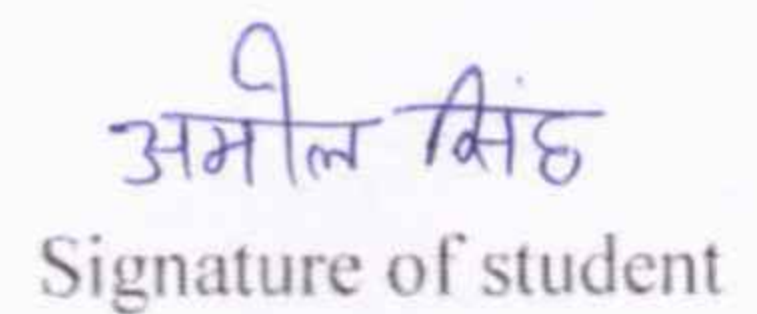 अमोल सिंह
Signature of student